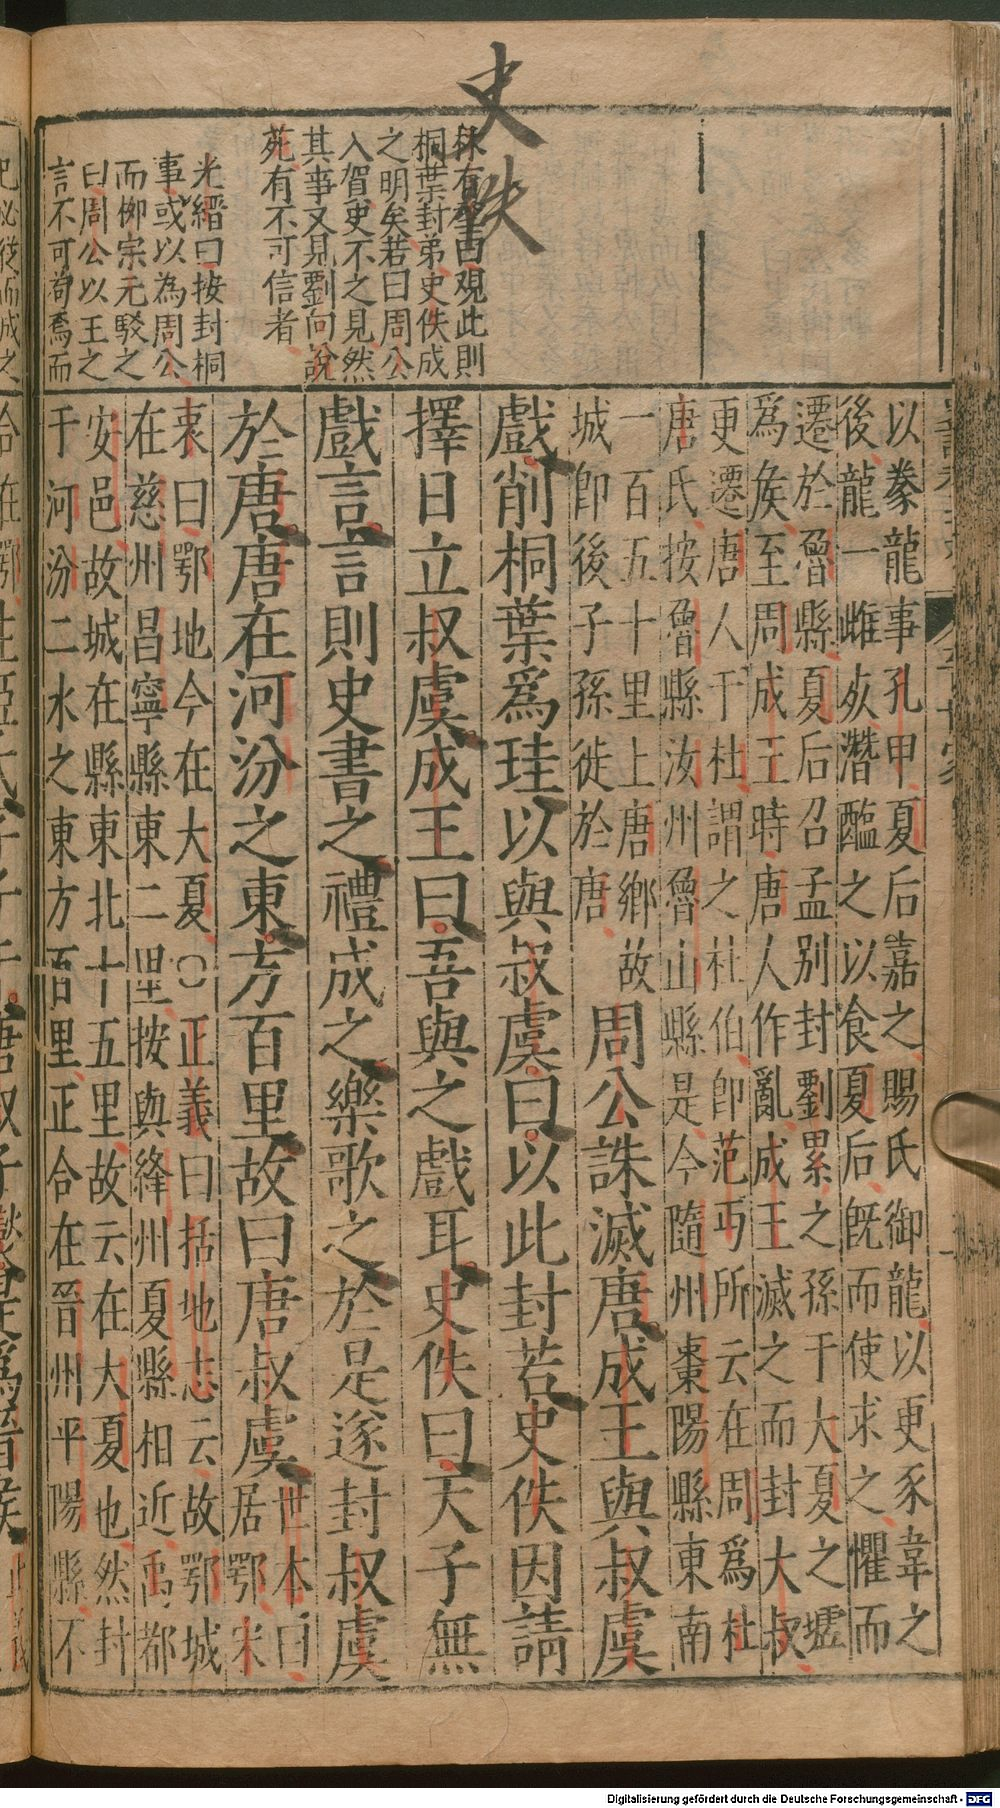 史佚
觀此則
桐葉封弟史佚成
之明矣若曰周公
入賀史不之見然
其事又見劉向說
苑有不可信者
光縉曰按封桐
事或以為周公
而柳宗元駁之
曰周公以王之
言不可茍焉而
以豢龍事孔甲夏后嘉之賜氏御龍以更豕韋之
後龍一雌死潛醢之以食夏后旣而使求之懼而
遷於魯縣夏后召孟別封劉累之孫于大夏之墟
爲侯至周成王時唐人作亂成王滅之而封大叔
更遷唐人于杜謂之杜伯卽范丐所云在周爲杜
唐氏按魯縣汝州魯山縣是今隨州棗陽縣東南
一百五十里上唐鄉故
城卽後子孫徙於唐
周公誅滅唐成王與叔虞
戲削桐葉爲珪以與叔虞曰以此封若史佚因請
擇日立叔虞成王曰吾與之戲耳史佚曰天子無
戲言言則史書之禮成之樂歌之於是遂封叔虞
於唐唐在河汾之東方百里故曰唐叔虞
世本曰
居鄂宋
衷曰鄂地今在大夏〇正義曰括地志云故鄂城
在慈州昌寧縣東二里按與絳州夏縣相近禹都
安邑故城在縣東北十五里故云在大夏也然封
于河汾二水之東方百里正合在晉州平陽縣不
Digitalisierung gefördert durch die Deutsche Forschungsgemeinschaft - DFG